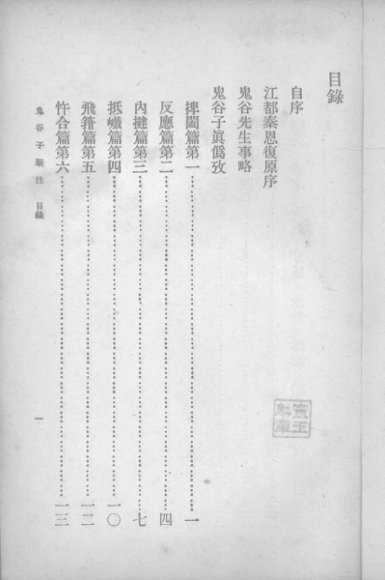 目錄
自序
江都秦恩復原序
鬼谷先生事略
鬼谷子眞僞攷
捭闔篇第一……一
反應篇第二……四
內揵篇第三……七
抵巇篇第四……一〇
飛箝篇第五……一二
忤合篇第六……一三
鬼谷子新注 目錄 一